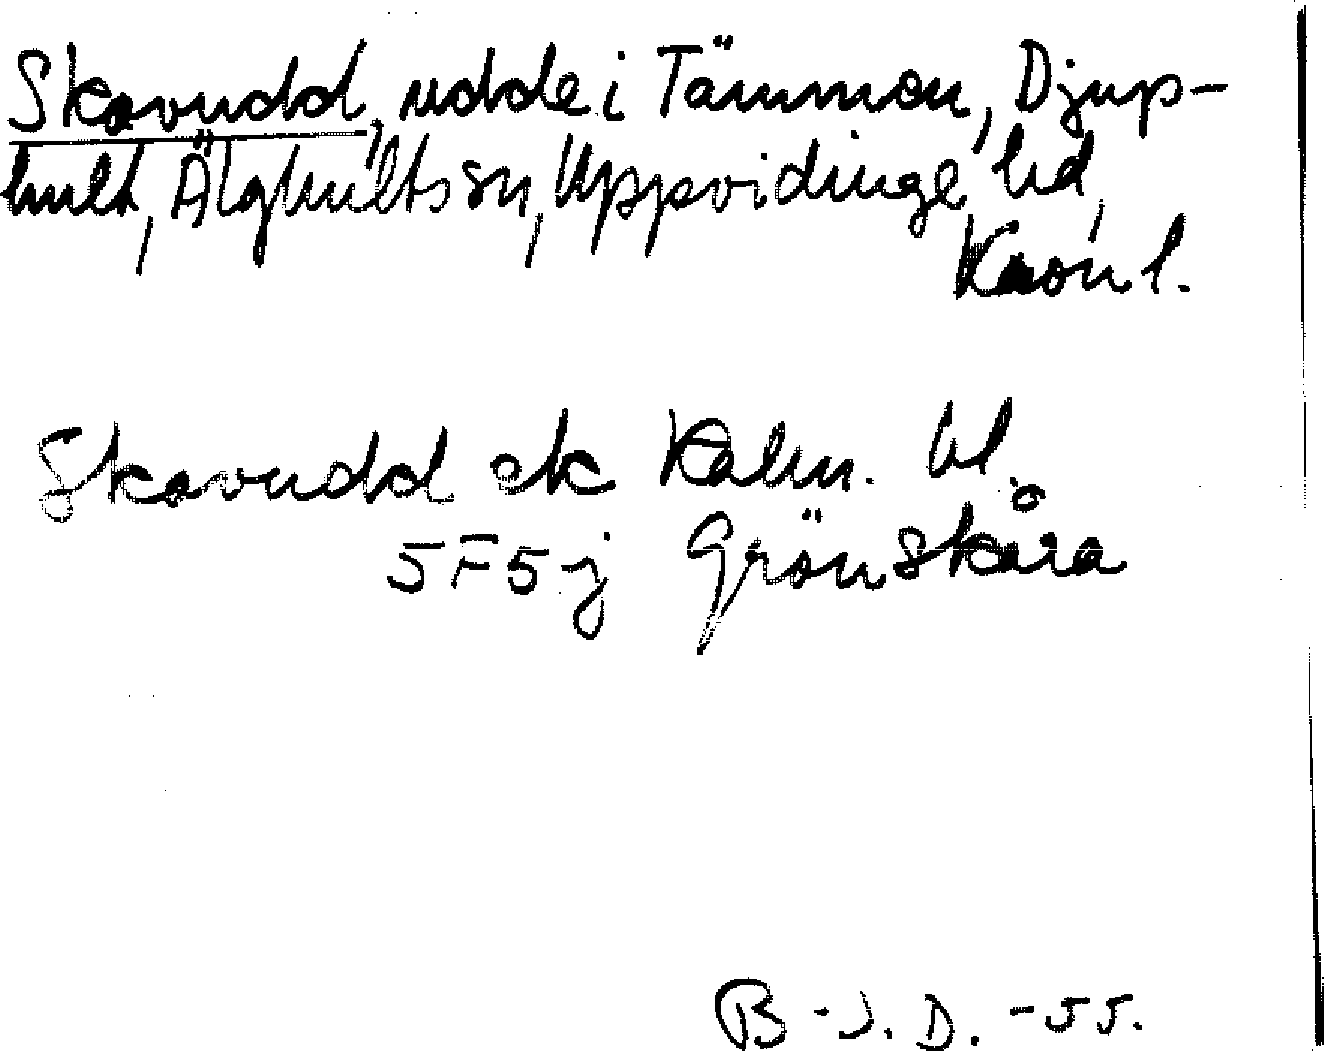 Skavudd, udde i Tämmen, Djup-
hult, Älghults sn, Uppvidinge hd,
Kron l.
Skavudd ek Kalm. bl.
5F5j Grönskåra
B-J.D. -55.